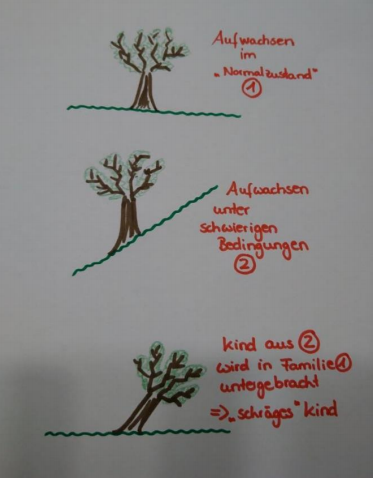 Aufwachsen
im
"Normalzustand"
①
Aufwachsen
unter
schwierigen
Bedingungen
②
kind aus ②
wird in Familie ①
untergebracht
=> "schräges" kind